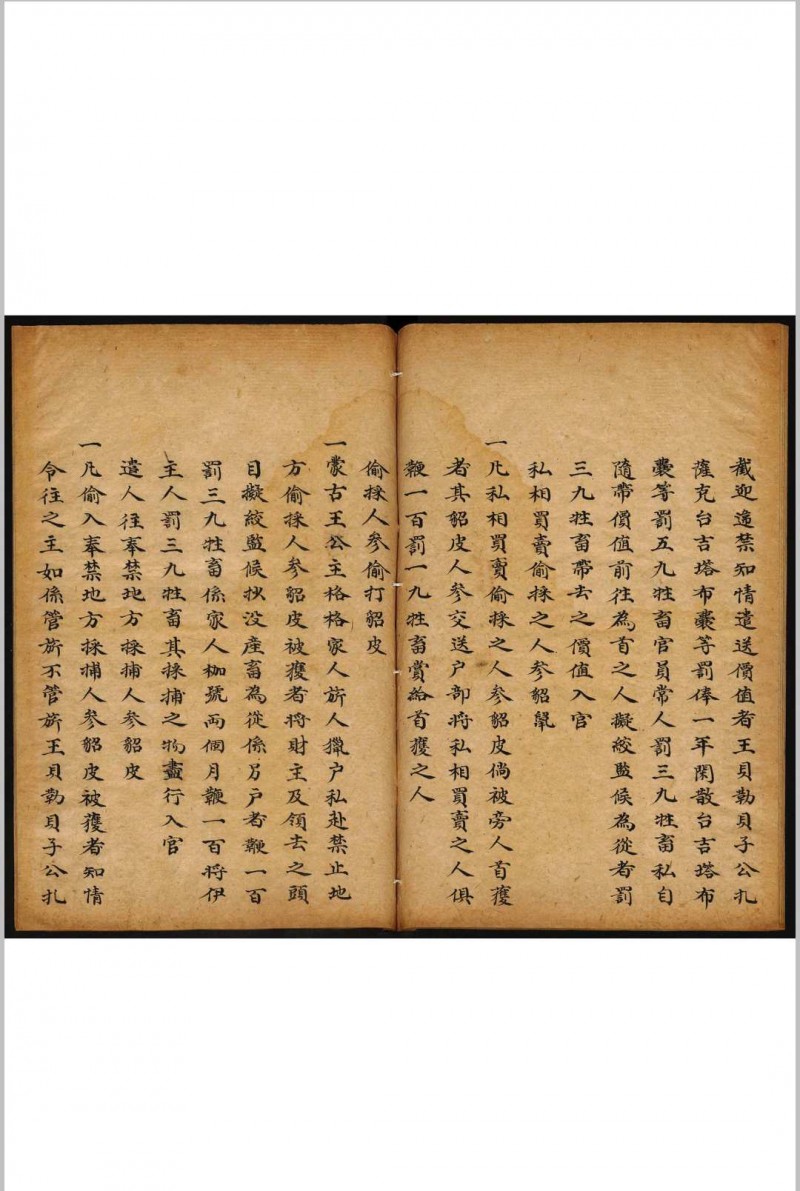 截迎違禁知情遣送價值者王貝勒貝子公扎
薩克台吉塔布囊等罰俸一年閑散台吉塔布
囊等罰五九牲畜官員常人罰三九牲畜私自
隨帶價值前往為首之人擬絞監候為從者罰
三九牲畜帶去之價值入官
私相買賣偷採之人參貂鼠
一凡私相買賣偷採之人參貂皮倘被旁人首獲
者其貂皮人參交送户部將私相買賣之人俱
鞭一百罰一九牲畜賞給首獲之人
偷採人參偷打貂皮
一蒙古王公主格格家人旂人獵户私赴禁止地
方偷採人參貂皮被獲者將財主及領去之頭
目擬絞監候抄没產畜為從係另户者鞭一百
罰三九牲畜係家人枷號兩個月鞭一百將伊
主人罰三九牲畜其採捕之物盡行入官
遣人往奉禁地方採捕人參貂皮
一凡偷入奉禁地方採捕人參貂皮被獲者知情
令往之主如係管旂不管旂王貝勒貝子公扎